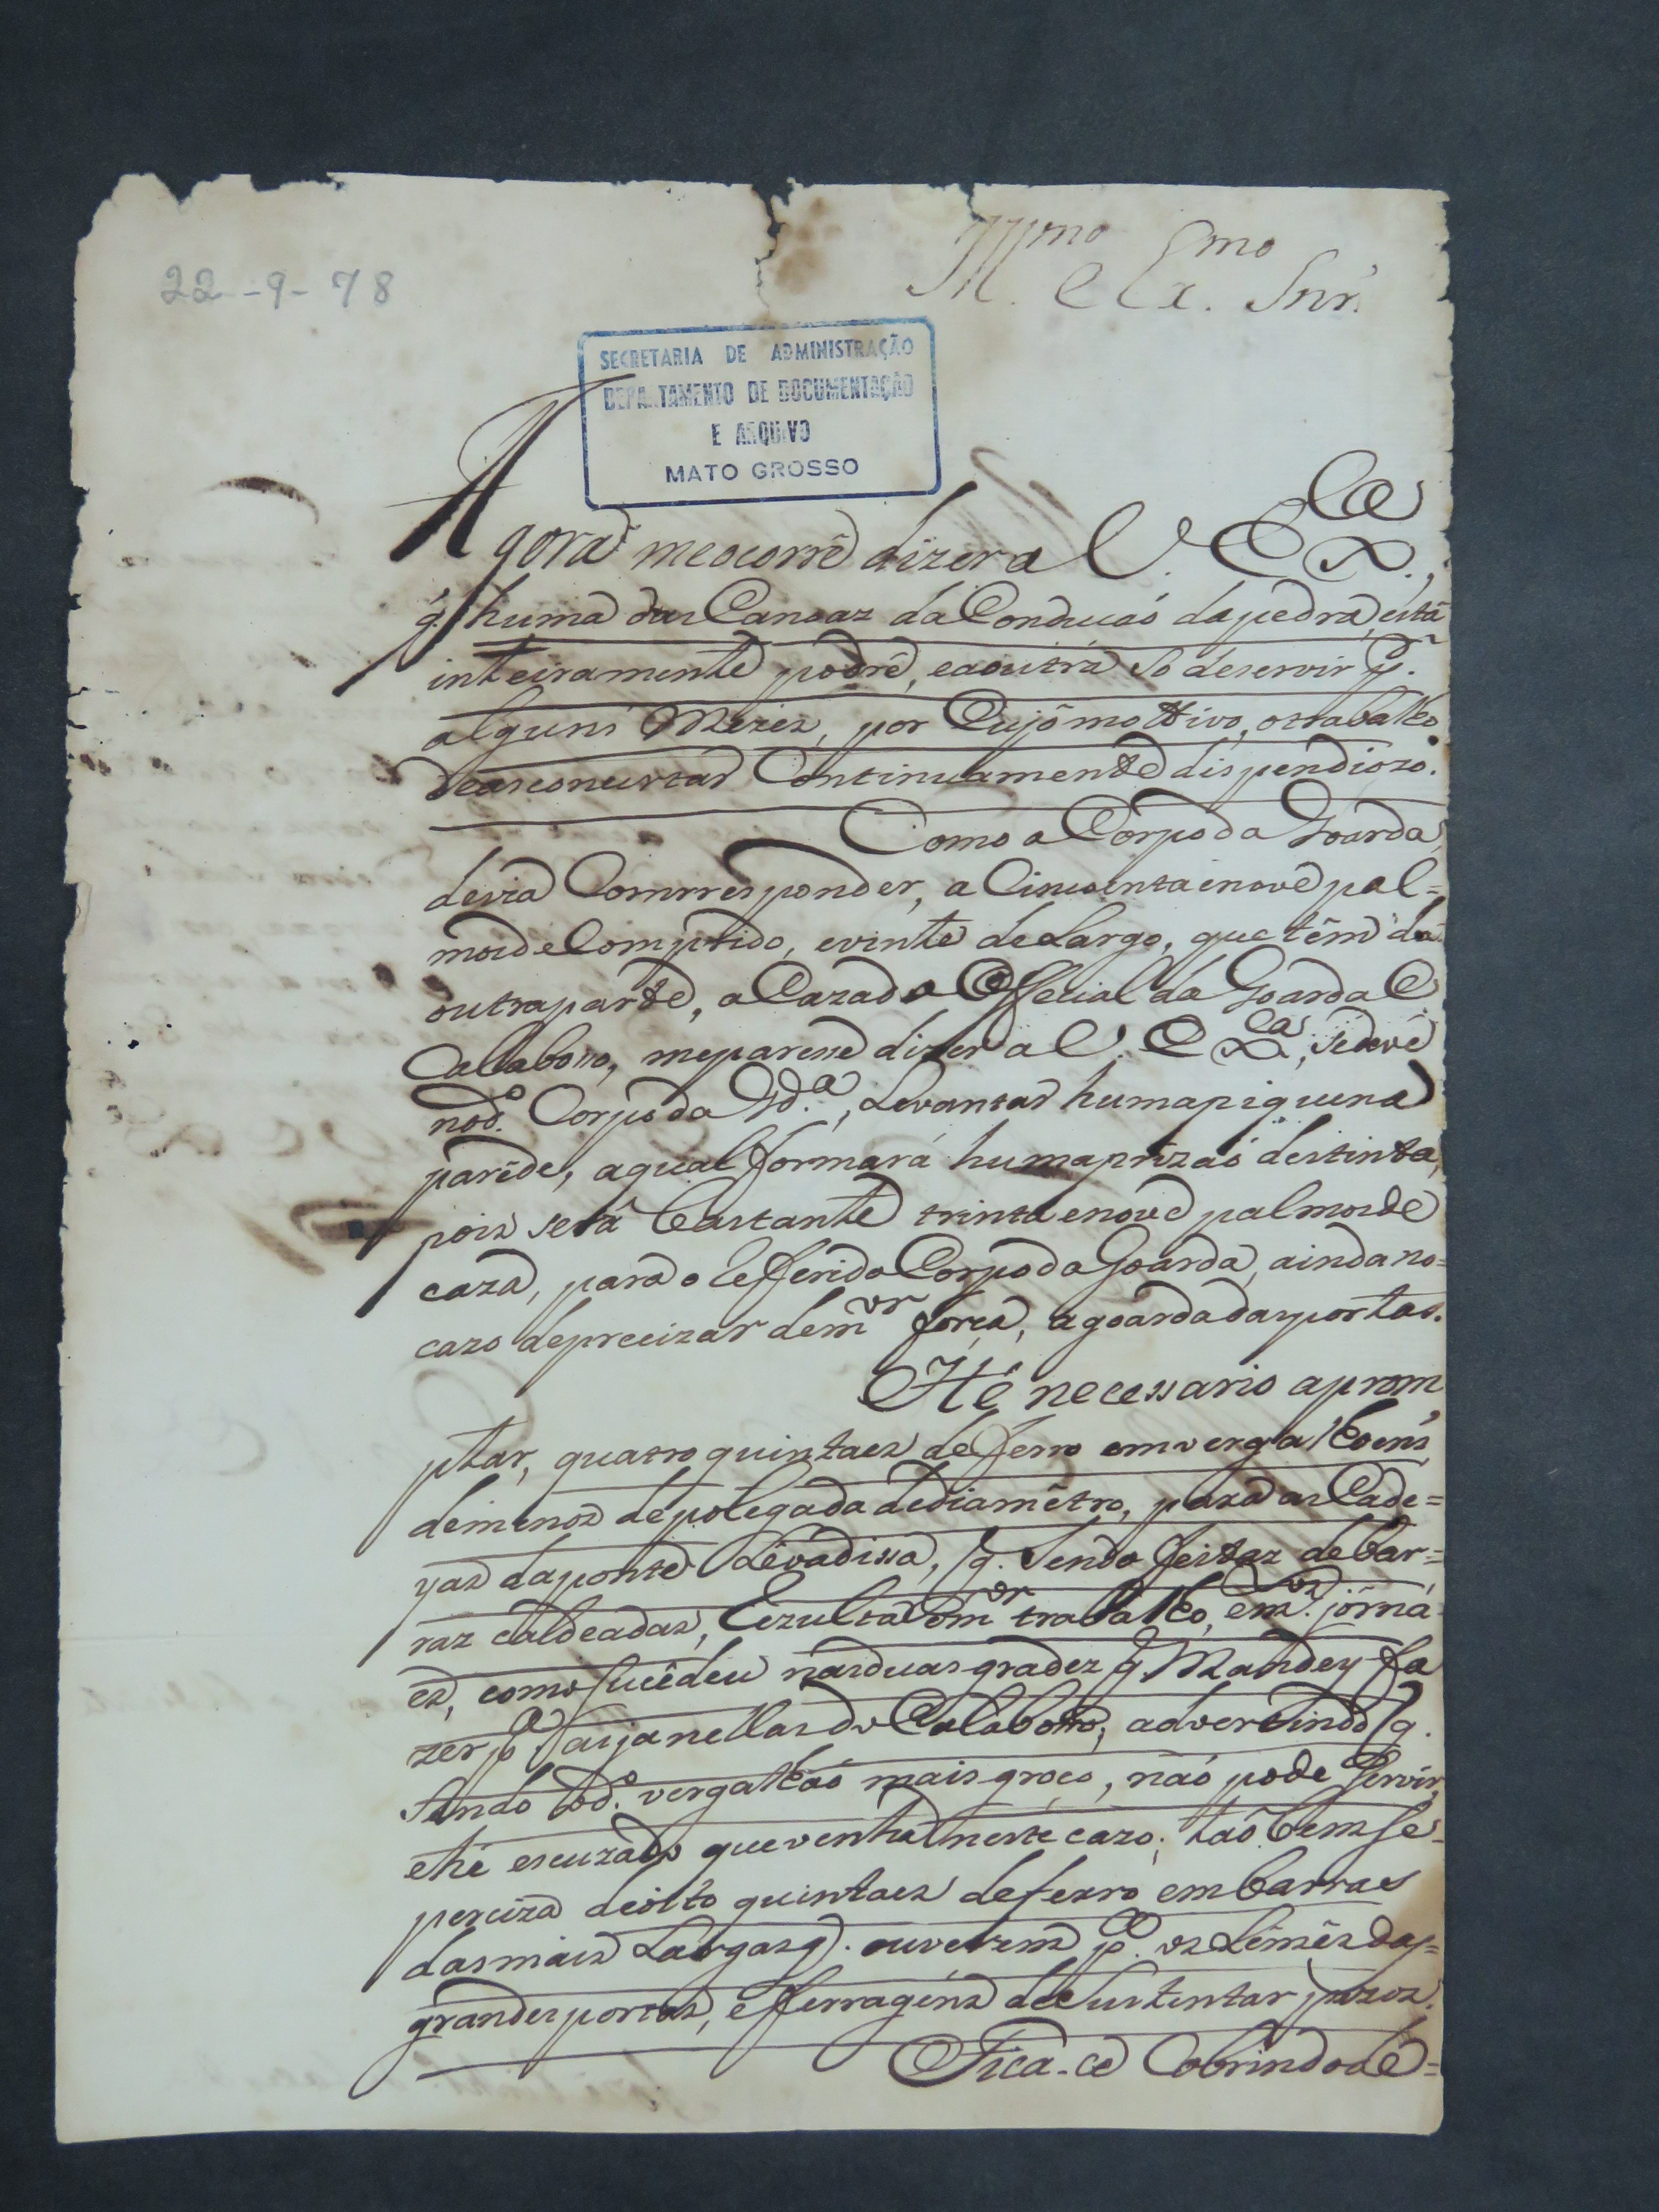 Illmo e Exmo Snr.
22-9-78
SECRETARIA DE ADMINISTRAÇÃO
DEPARTAMENTO DE DOCUMENTAÇÃO
E ARQUIVO
MATO GROSSO
Agora meocorre dizer a V. Exca.,
q. huma das Canoaz da Conducaõ da pedra, está
inteiramente podre, eaoutra só deservir pa.
alguns Mezes, por Cujo mottivo, otrabalho
deasconcertar Continuamente dispendiozo.
Como o Corpo da Goarda
devia Comrresponder, a Cincoenta enove pal=
mos de Comprido, evinte de Largo, que tem da
outra parte, a Caza do Official da Goarda e
Calabouo, meparesse dizer a V. Exca., sedeve
nod.o Corpo da Gd.a, Levantar huma piquena
parede, aqual formará huma prizaõ destinta,
pois será bastante trinta enove palmos de
caza, para o Refferido Corpo da Goarda, ainda no=
cazo deprecizar demor força, agoarda das portas.
Hé necessario aprom
ptar, quatro quintaes de ferro em vergalhoens
demenos depolegada dediametro, para as Cade=
yas daponte Levadissa, q. Sendo feitaz debar=
raz caldeadas, Rezulta omor trabalho, em.tos jorna
es, como sucedeu nas duas grades q Mandey fa
zer pa. as janellas do Calabouo, advertindo q.
Sendo od.o vergalhaõ mais groço, naõ pode Servir,
ehé escuzado quevenha neste cazo; taõ bem se
perciza deoito quintaes deferro em barras
das mais Largas q. ouverem pa. os Lemes das=
grandes portas, e fferragens de Sustentar pezos.
Fica-ce Cobrindo dé=